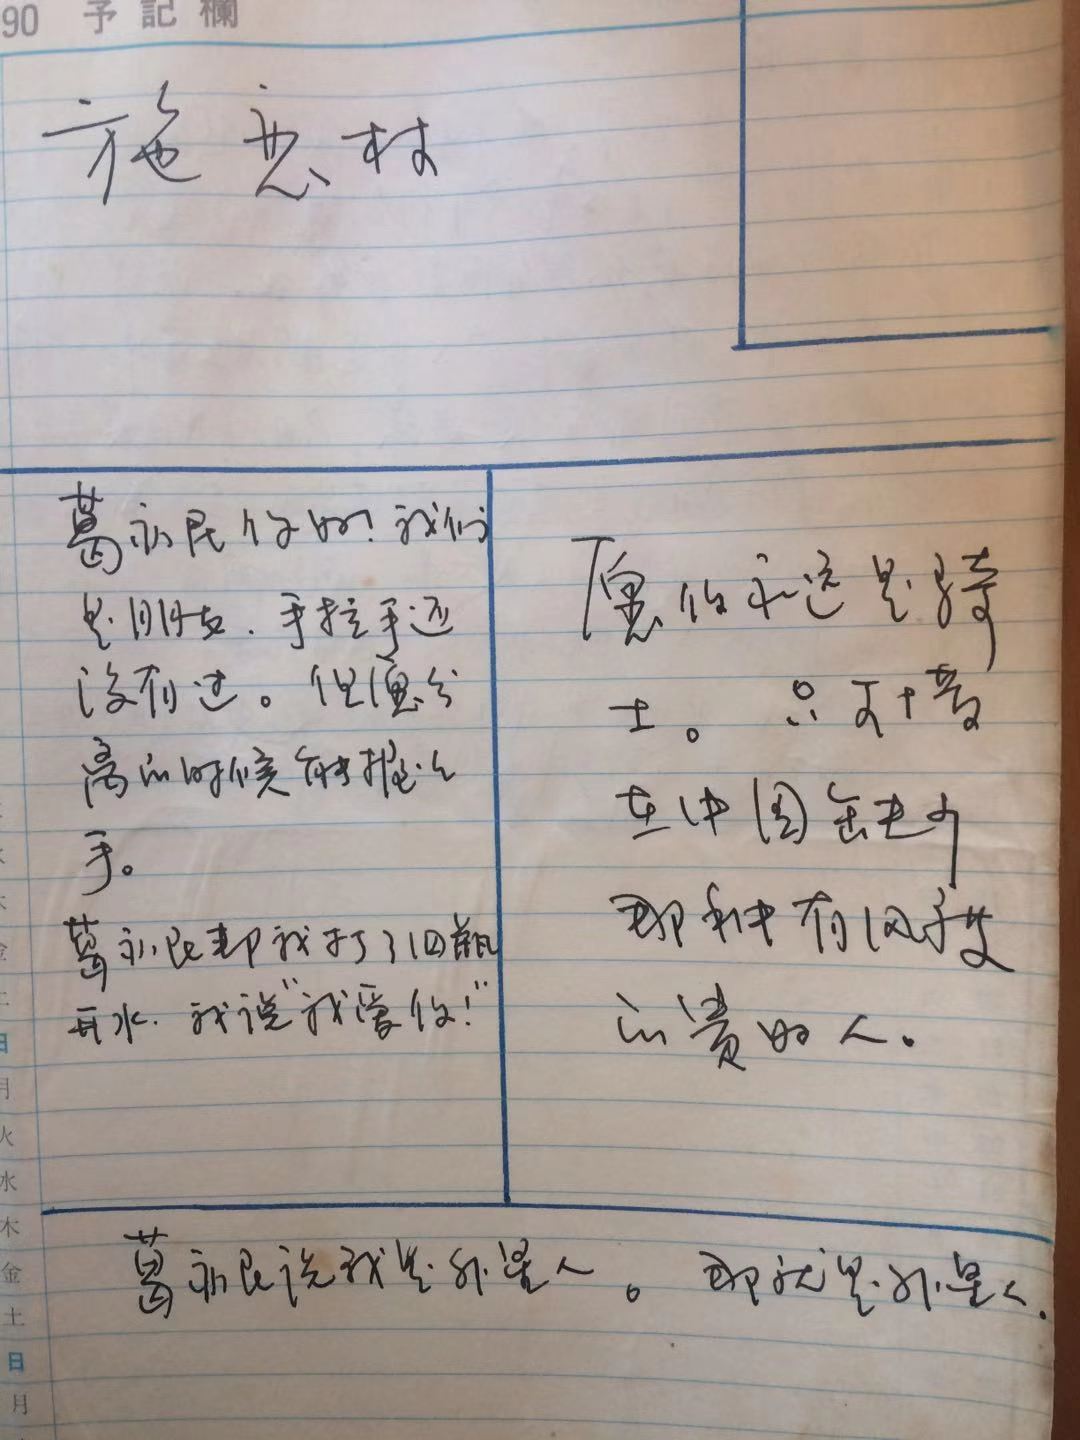 90 予記欄
施忠村
葛永民你好!我们
是朋友.手拉手还
没有过。但愿分
离的时候能握个
手。
葛永民帮我打了回瓶
开水.我说"我爱你!"
愿你永远是骑
士。只不十
在中国缺少
那种有风度
的贵的人。
葛永民说我是外星人。那就是外星人.
日
月
火
水
木
金
土
日
月